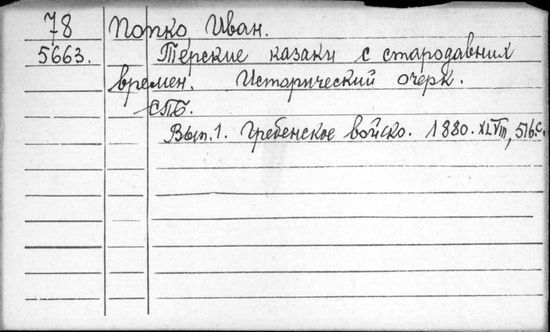 78 Попко Иван.
5663. Терские казаки с стародавних
времен. Исторический очерк.
СПБ.
Вып. 1. Гребенское войско. 1880. XLVIII, 516 с.